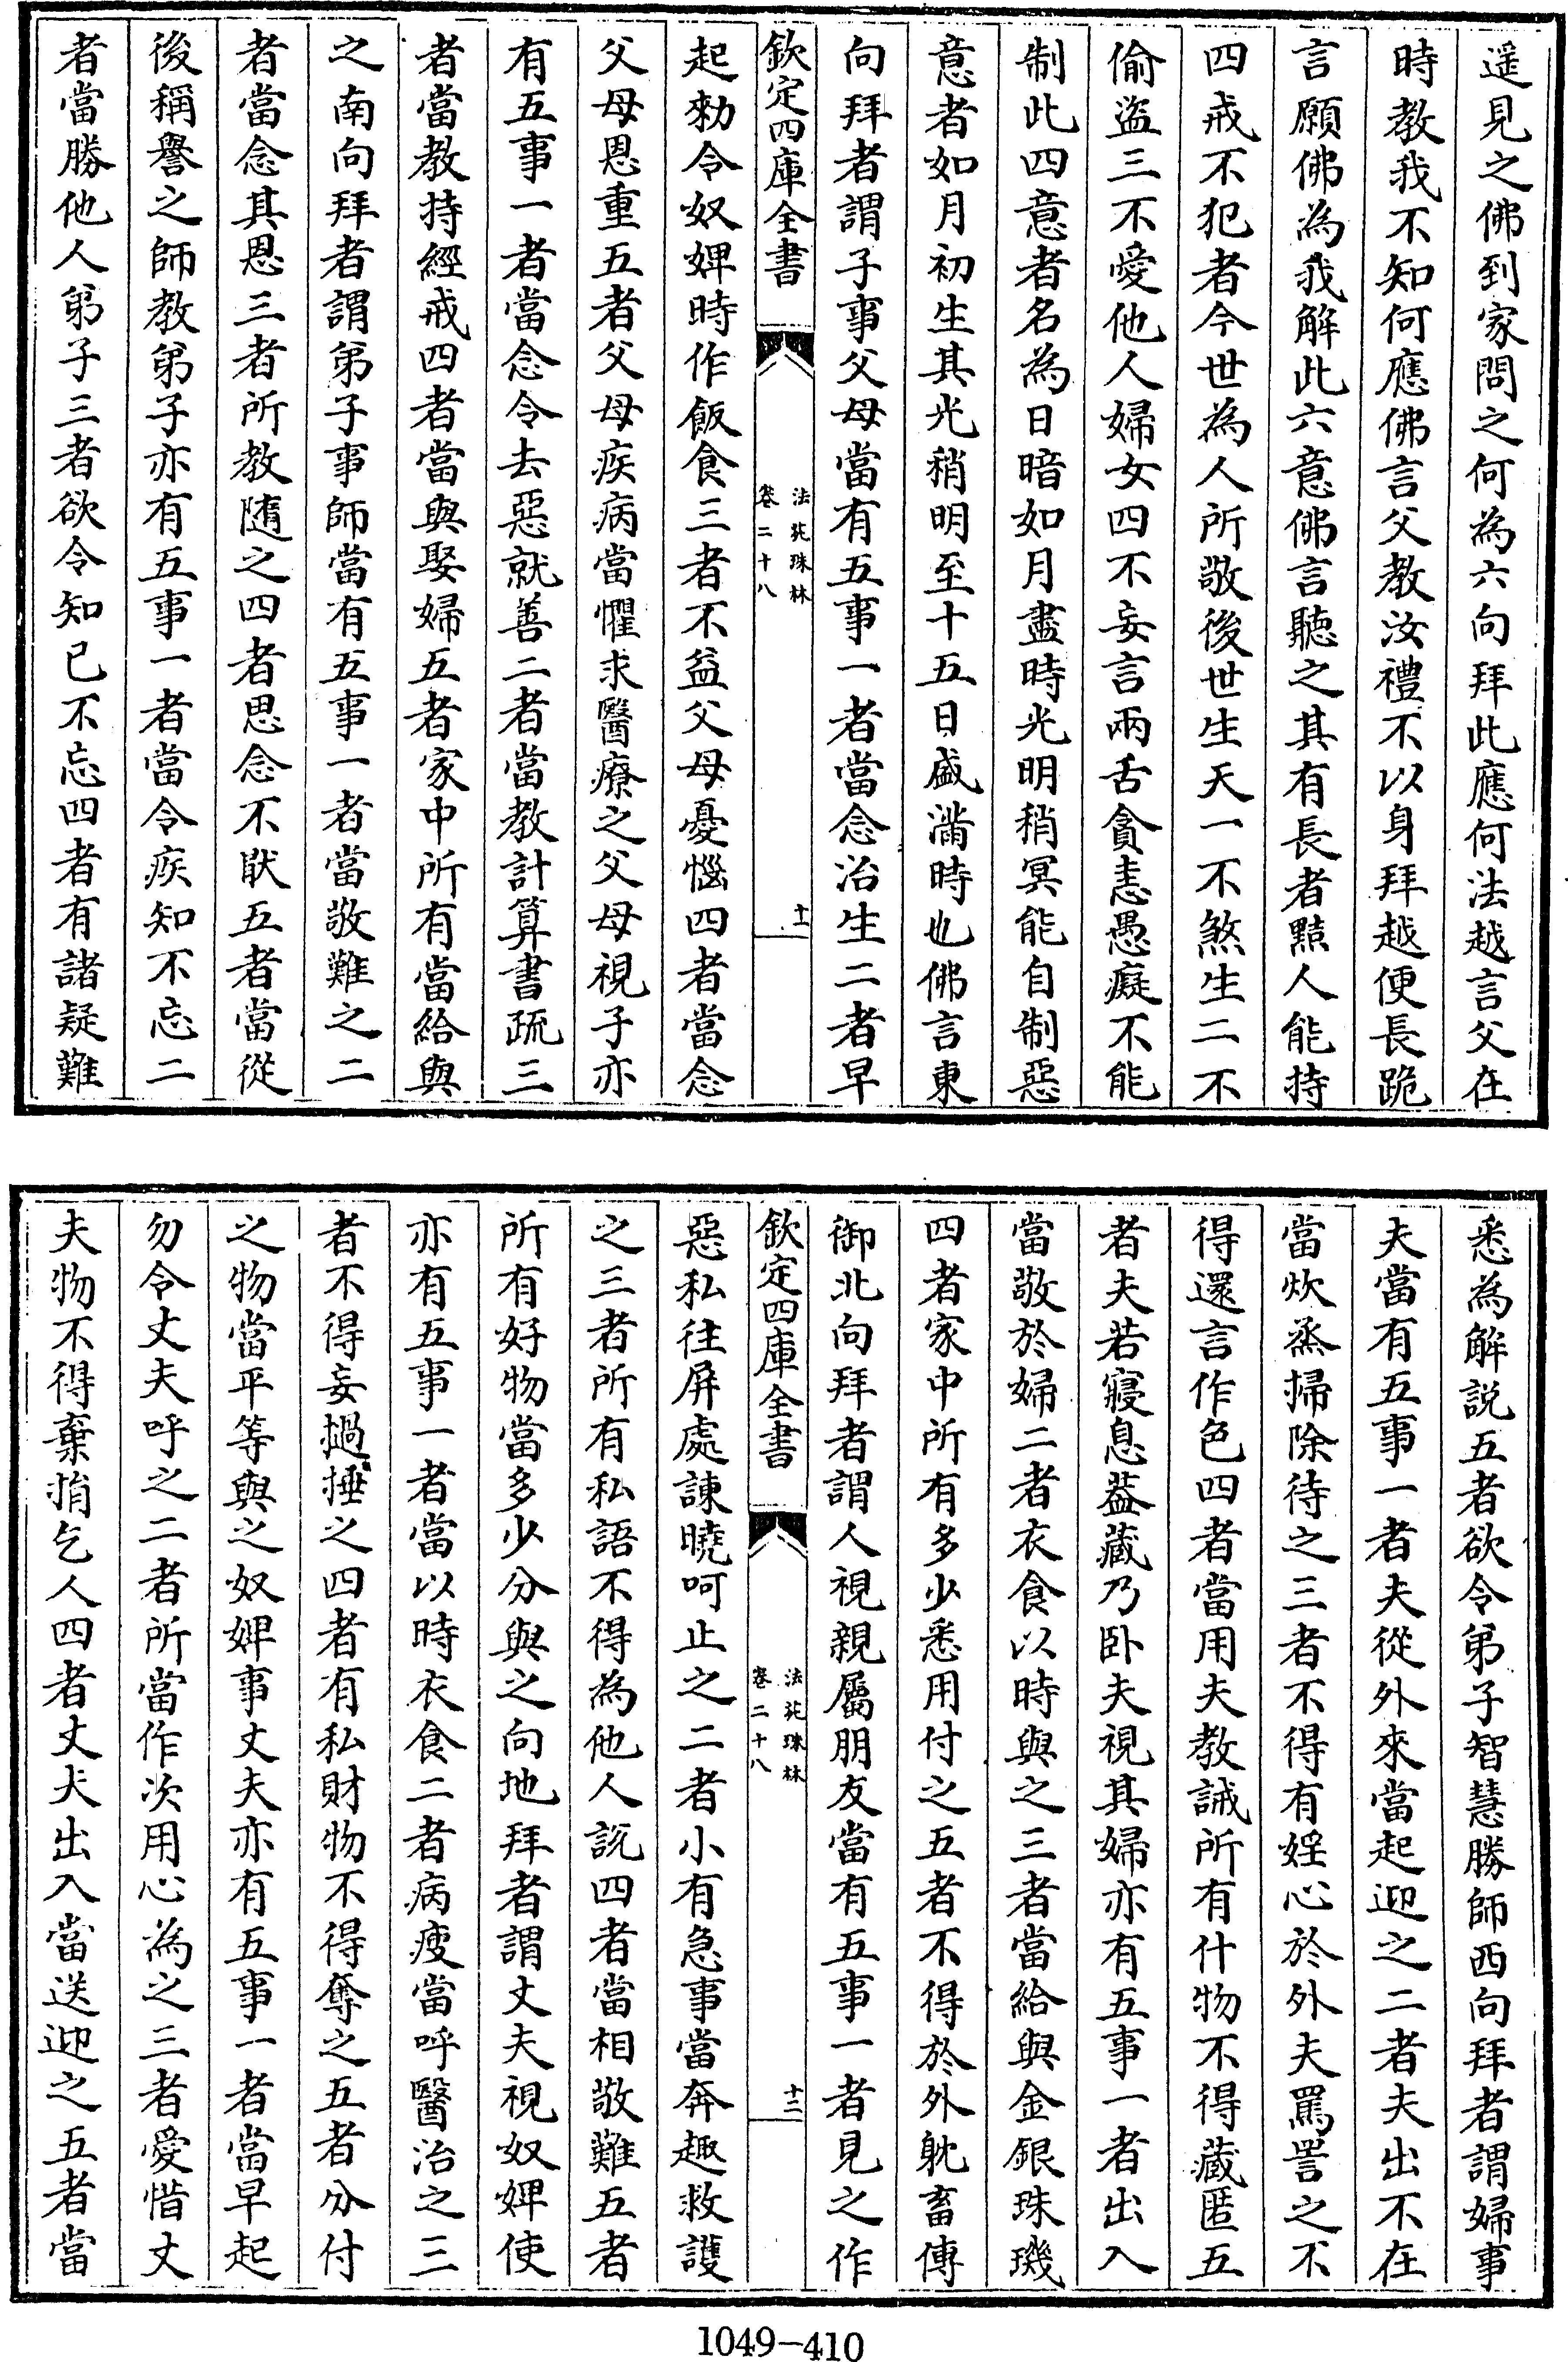 遥見之佛到家問之何為六向拜此應何法越言父在
時教我不知何應佛言父教汝禮不以身拜越便長跪
言願佛為我解此六意佛言聽之其有長者黠人能持
四戒不犯者今世為人所敬後世生天一不煞生二不
偷盜三不愛他人婦女四不妄言兩舌貪恚愚癡不能
制此四意者名為日暗如月盡時光明稍冥能自制惡
意者如月初生其光稍明至十五日盛滿時也佛言東
向拜者謂子事父母當有五事一者當念治生二者早
欽定四庫全書
法苑珠林
卷二十八
十一
起勑令奴婢時作飯食三者不益父母憂惱四者當念
父母恩重五者父母疾病當懼求醫療之父母視子亦
有五事一者當念令去惡就善二者當教計算書疏三
者當教持經戒四者當與娶婦五者家中所有當給與
之南向拜者謂弟子事師當有五事一者當敬難之二
者當念其恩三者所教隨之四者思念不猒五者當從
後稱譽之師教弟子亦有五事一者當令疾知不忘二
者當勝他人弟子三者欲令知已不忘四者有諸疑難
悉為解説五者欲令弟子智慧勝師西向拜者謂婦事
夫當有五事一者夫從外來當起迎之二者夫出不在
當炊蒸掃除待之三者不得有婬心於外夫罵詈之不
得還言作色四者當用夫教誡所有什物不得藏匿五
者夫若寢息葢藏乃卧夫視其婦亦有五事一者出入
當敬於婦二者衣食以時與之三者當給與金銀珠璣
四者家中所有多少悉用付之五者不得於外躭畜傳
御北向拜者謂人視親屬朋友當有五事一者見之作
欽定四庫全書
法苑珠林
卷二十八
十二
惡私往屏處諫曉呵止之二者小有急事當奔趣救護
之三者所有私語不得為他人説四者當相敬難五者
所有好物當多少分與之向地拜者謂丈夫視奴婢使
亦有五事一者當以時衣食二者病瘦當呼醫治之三
者不得妄撾捶之四者有私財物不得奪之五者分付
之物當平等與之奴婢事丈夫亦有五事一者當早起
勿令丈夫呼之二者所當作次用心為之三者愛惜丈
夫物不得棄捐乞人四者丈夫出入當送迎之五者當
1049-410